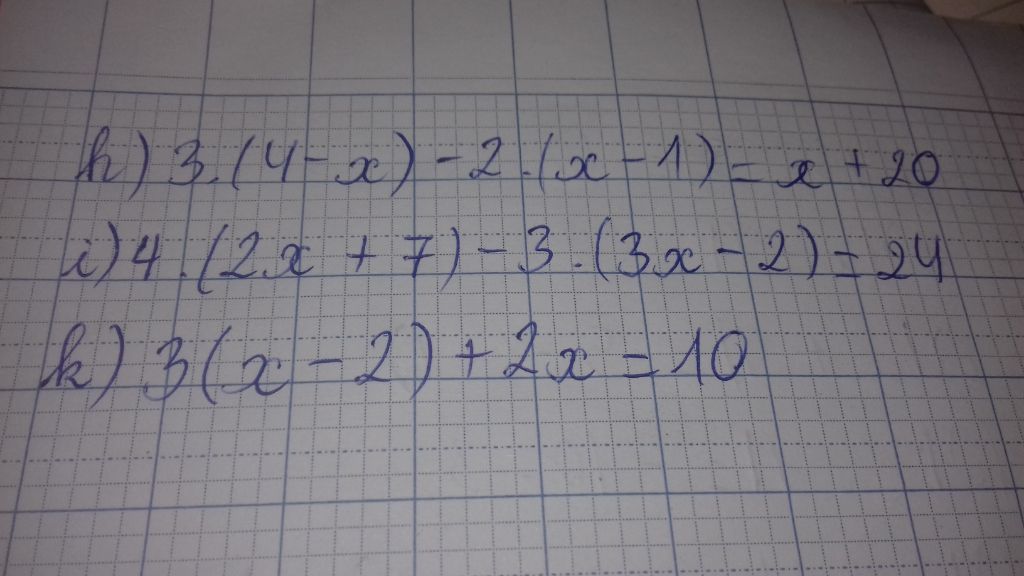 h) 3.(4-x)-2.(x-1)=x+20
i) 4.(2x+7)-3.(3x-2)=24
k) 3(x-2)+2x=10